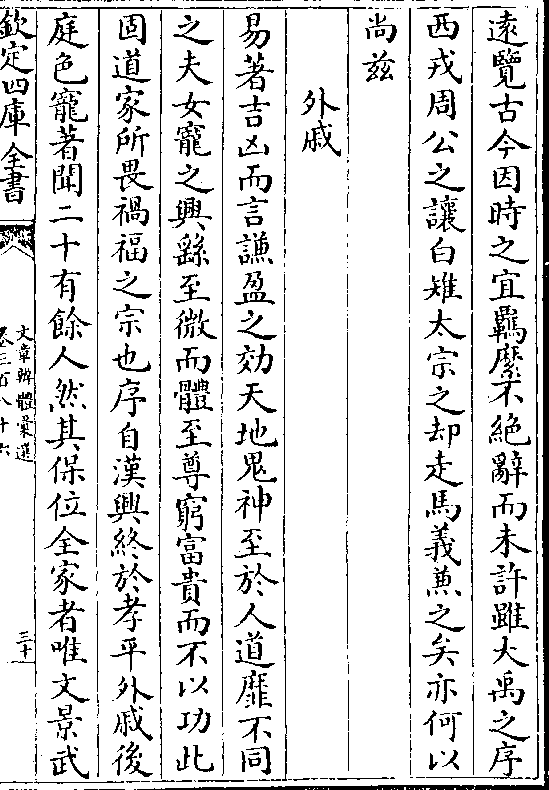 遠覽古今因時之宜羈縻不絕辭而未許雖大禹之序
西戎周公之讓白雉太宗之却走馬義兼之矣亦何以
尚兹
外戚
易著吉凶而言謙盈之効天地鬼神至於人道靡不同
之夫女寵之興繇至微而體至尊窮富貴而不以功此
固道家所畏禍福之宗也序自漢興終於孝平外戚後
庭色寵著聞二十有餘人然其保位全家者唯文景武
欽定四庫全書
文章辨體彙選
卷三百八十六
三十